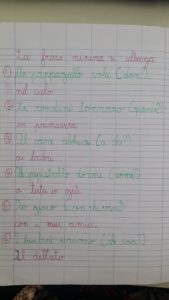 La frase minima si allarga
① Un pappagallo vola (dove?)
nel cielo
② Le rondini tornano (quando?)
in primavera
③ Il cane abbaia (a chi?)
ai ladri
④ Il pipistrello dorme (come?)
a testa in giù
⑤ Io gioco (con chi?)
con i miei amici
⑥ I bambini scrivono (che cosa?)
il dettato